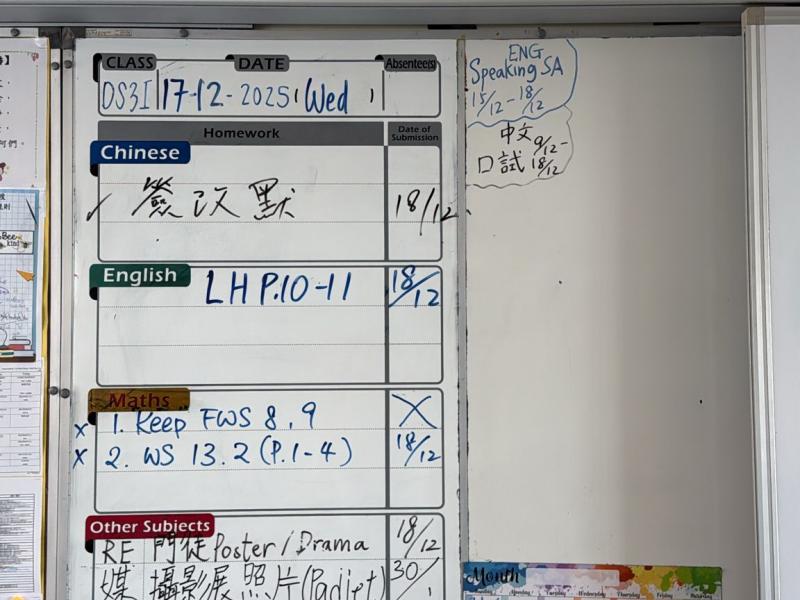 CLASS DATE Absentee(s)
DS3I 17-12-2025 Wed
Homework Date of Submission
Chinese
簽改默 18/12
English
LH P.10-11 18/12
Maths
1. Keep FWS 8, 9
2. WS 13.2 (P.1-4) 18/12
Other Subjects
RE 門徒 Poster / Drama 18/12
媒 攝影展照片 (Padlet) 30/1
ENG
Speaking SA
15/12 - 18/12
中文 9/12 -
口試 18/12
Month